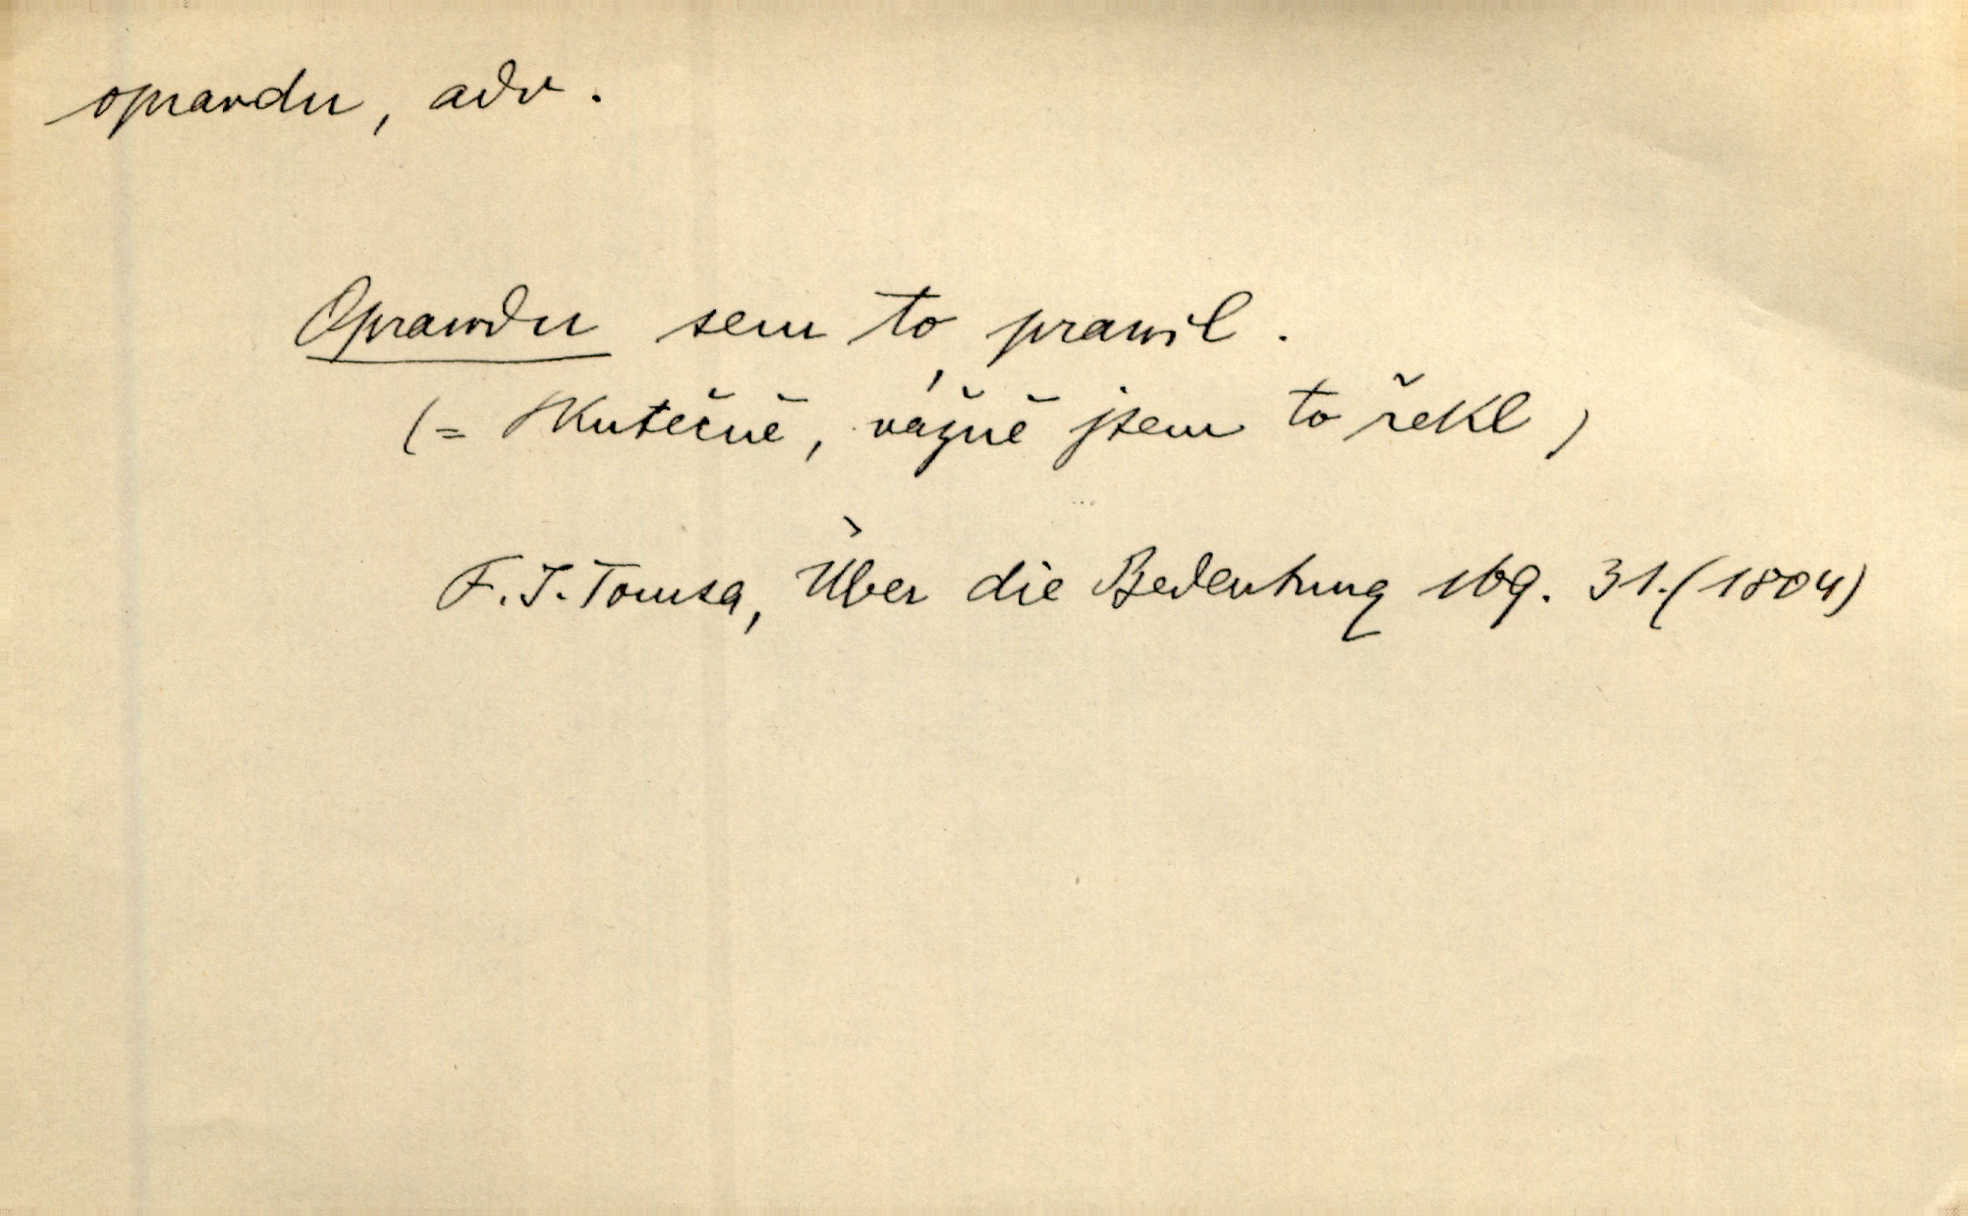 opravdu, adv.
Oprawdu sem to prawil.
(= Skutečně, vážně jsem to řekl)
F. J. Tomsa, Über die Bedeutung 169. 31. (1804)